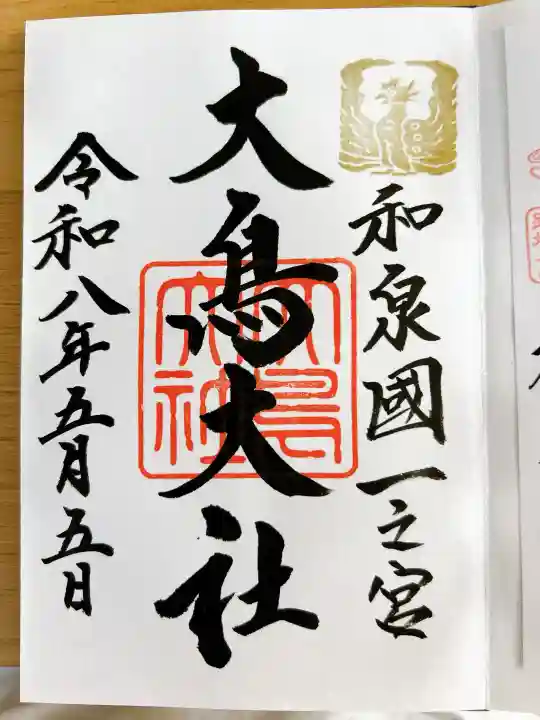 和泉國一之宮
大鳥大社
大鳥大社
令和八年五月五日